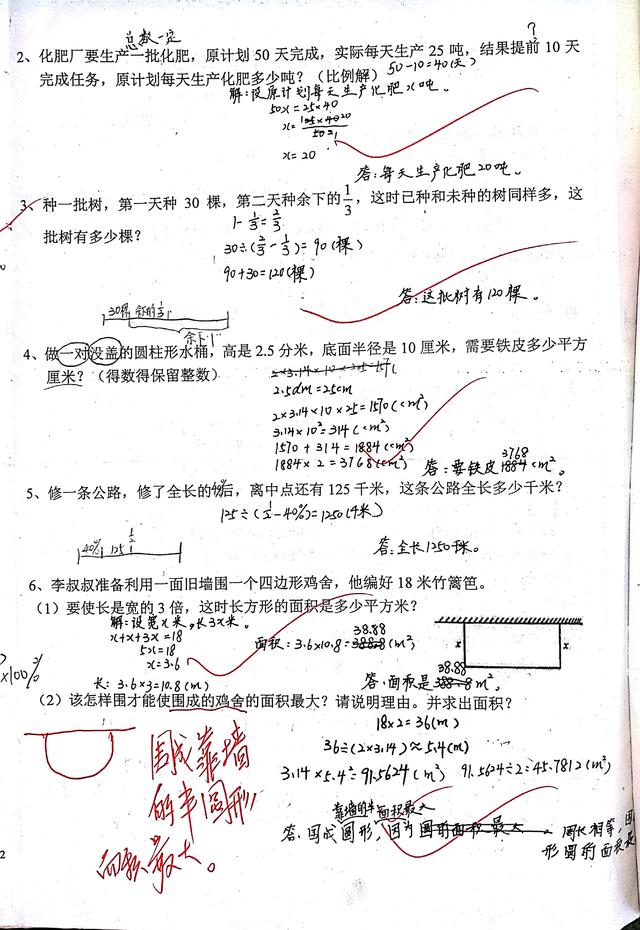 总数一定
?
2、化肥厂要生产一批化肥，原计划 50 天完成，实际每天生产 25 吨，结果提前 10 天
完成任务，原计划每天生产化肥多少吨？（比例解） 50-10=40(天)
解:设原计划每天生产化肥x吨。
50x=25×40
x=20
答:每天生产化肥20吨。
3、种一批树，第一天种 30 棵，第二天种余下的1/3，这时已种和未种的树同样多，这
批树有多少棵？
1-1/3=2/3
30÷(2/3-1/3)=90(棵)
90+30=120(棵)
答:这批树有120棵。
30棵 余的1/3
余下"1"
4、做一对没盖的圆柱形水桶，高是 2.5 分米，底面半径是 10 厘米，需要铁皮多少平方
厘米？（得数得保留整数）
2.5dm=25cm
2×3.14×10×25=1570(cm²)
3.14×10²=314(cm²)
1570+314=1884(cm²)
1884×2=3768(cm²)
3768
答:要铁皮1884cm²。
5、修一条公路，修了全长的40%后，离中点还有 125 千米，这条公路全长多少千米？
125÷(1/2-40%)=1250(千米)
40% 125 1/2
答:全长1250千米。
6、李叔叔准备利用一面旧墙围一个四边形鸡舍，他编好 18 米竹篱笆。
（1）要使长是宽的 3 倍，这时长方形的面积是多少平方米？
解:设宽x米,长3x米。
x+x+3x=18
5x=18
x=3.6
长:3.6×3=10.8(m)
38.88
面积:3.6×10.8=388.8(m²)
x x
38.88
答:面积是388.8m²。
×100%
（2）该怎样围才能使围成的鸡舍的面积最大？请说明理由。并求出面积？
18×2=36(m)
36÷(2×3.14)≈5.4(m)
3.14×5.4²=91.5624(m²) 91.5624÷2=45.7812(m²)
围成靠墙
的半圆形
面积最大。
靠墙的半 面积最大
答:围成圆形,因为圆的面积最大 周长相等,
形圆的面积
2